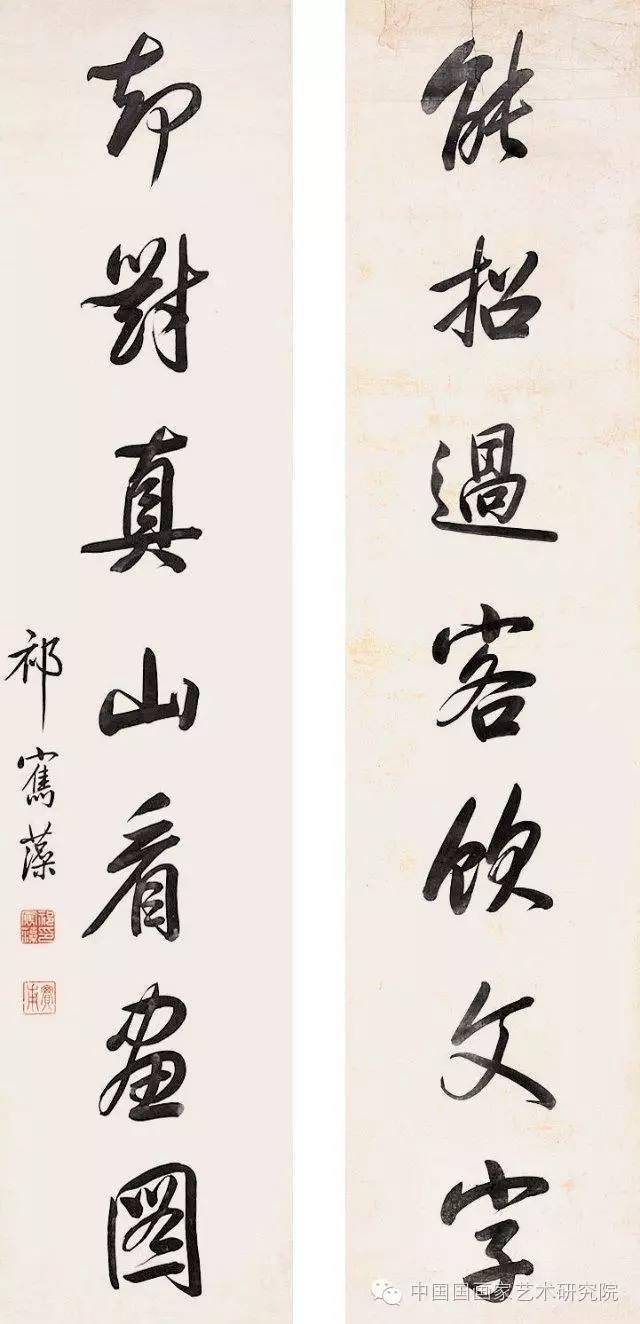 能招過客飲文字
却對真山看畫圖
祁寯藻
中国国画家艺术研究院